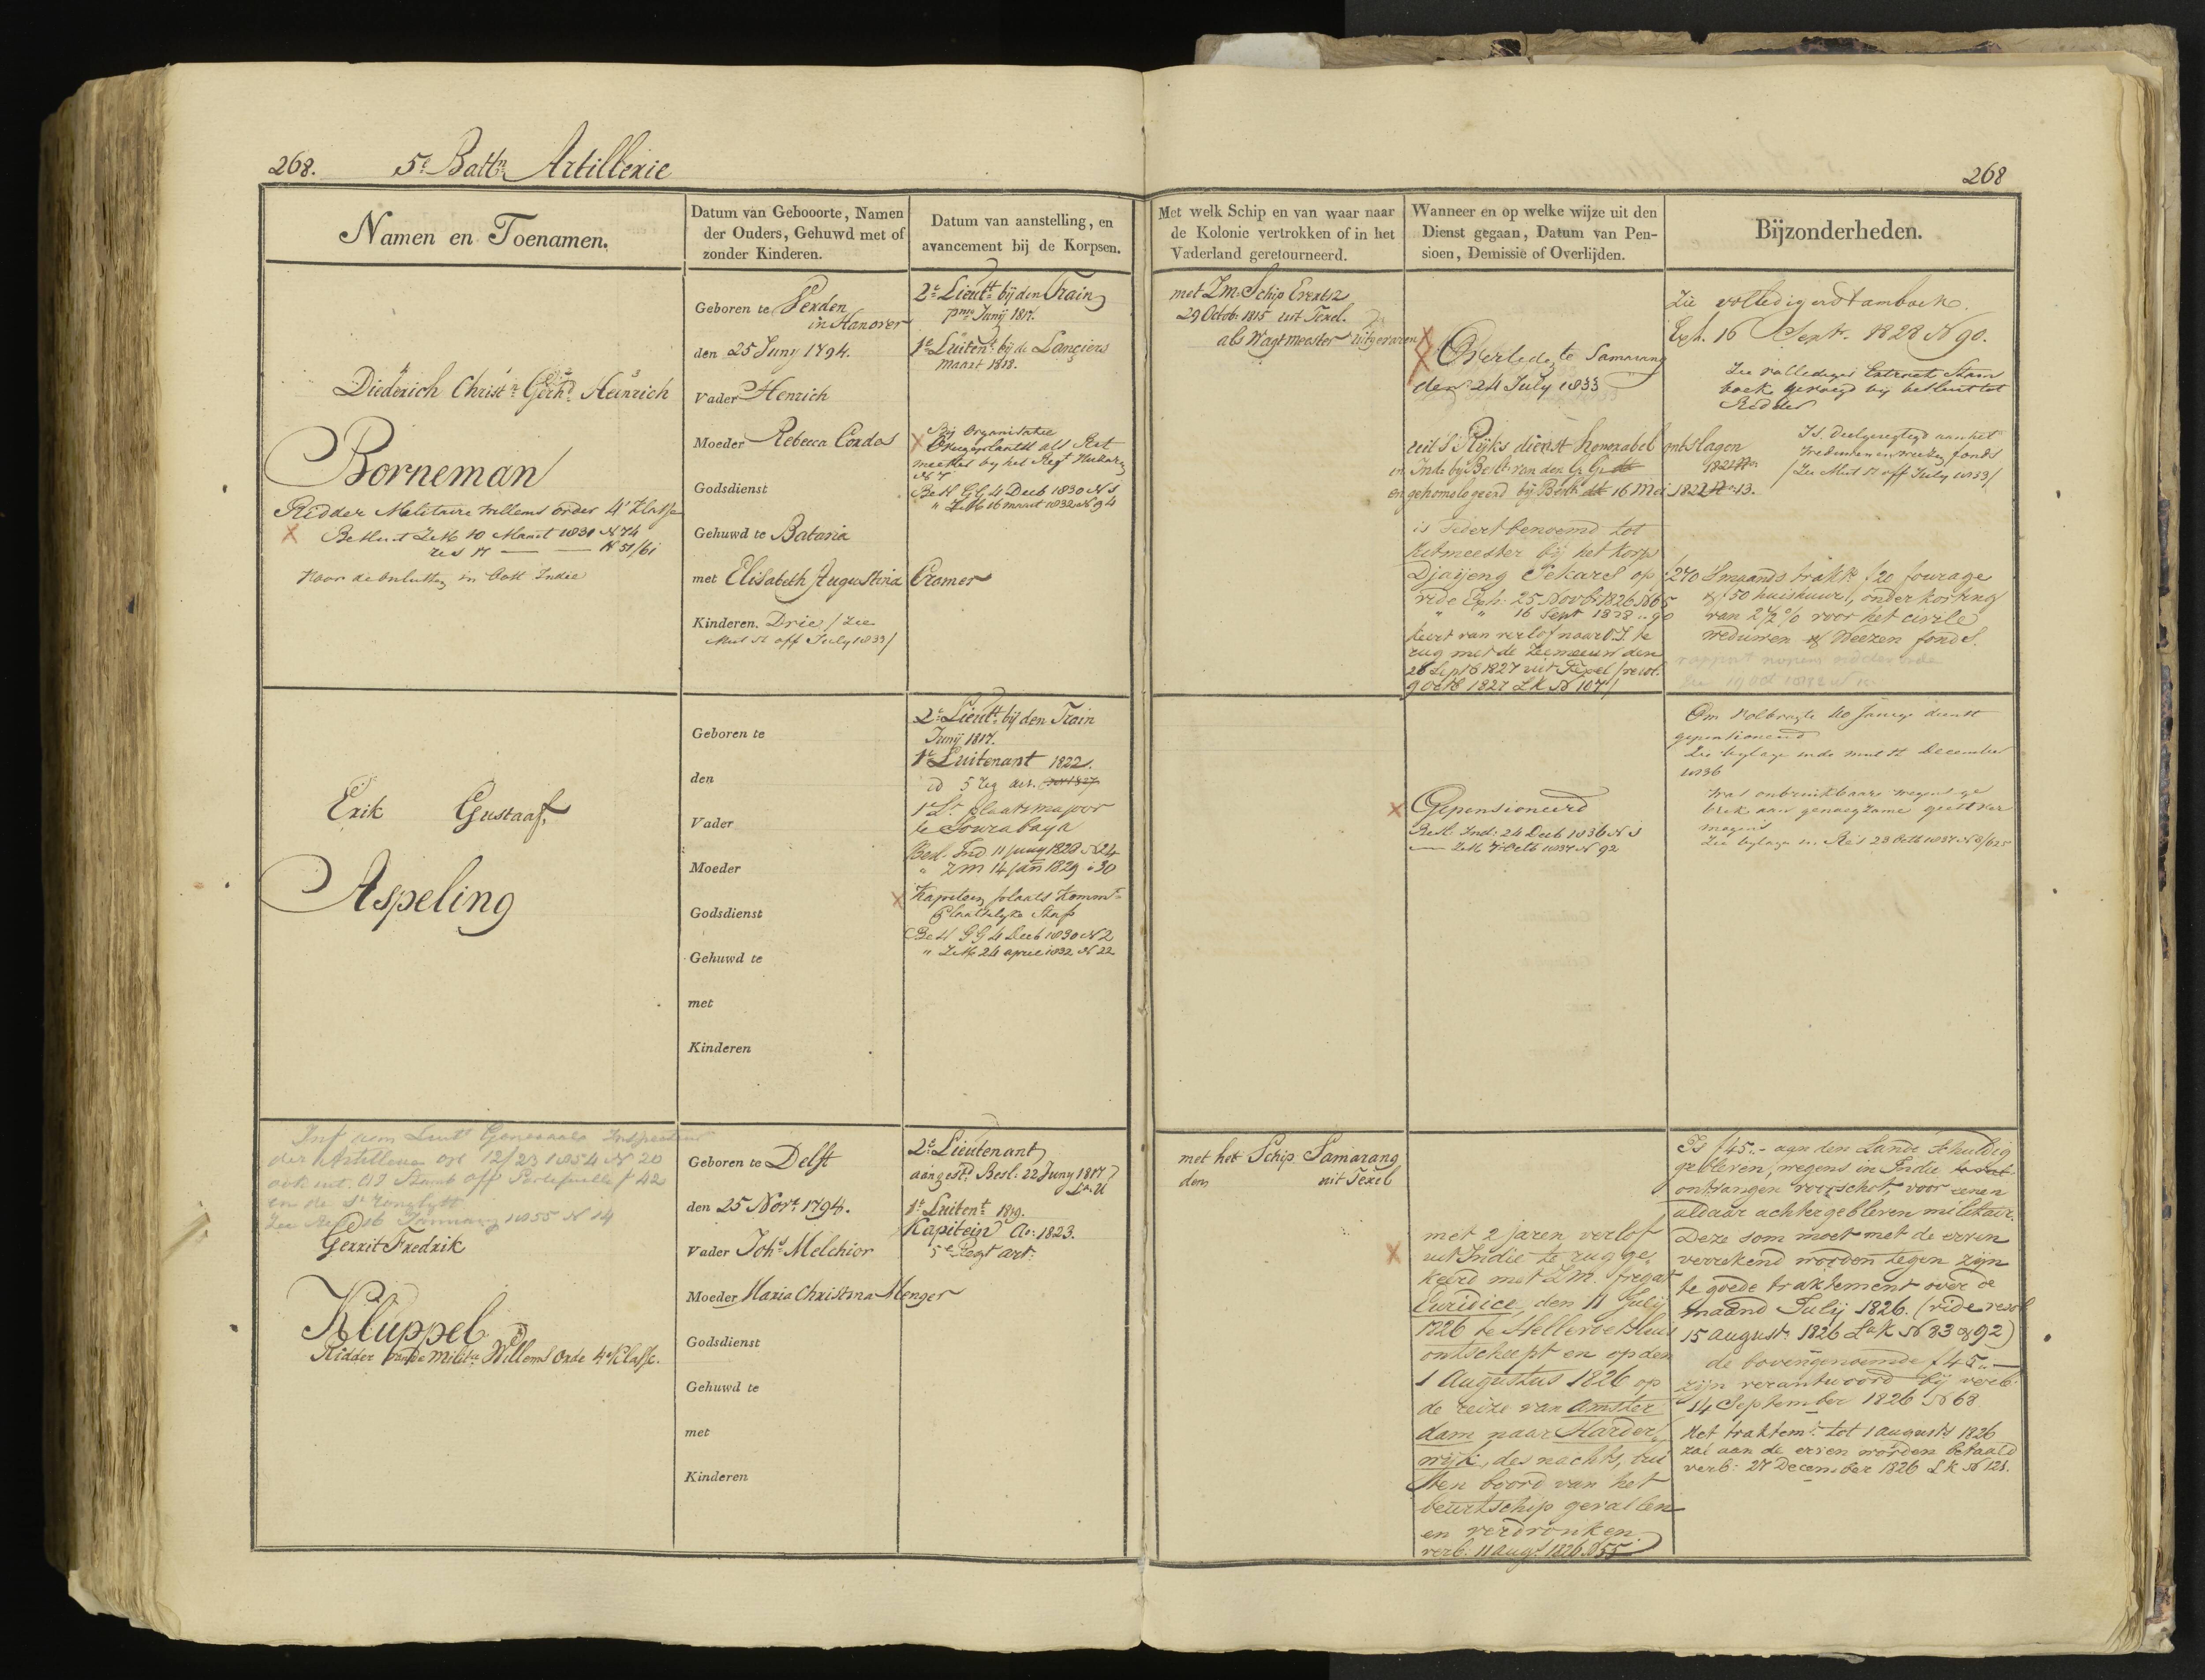 268. 5e Battn Artillerie
268
Namen en Toenamen.
Datum van Gebooorte, Namen
der Ouders, Gehuwd met of
zonder Kinderen.
Datum van aanstelling, en
avancement bij de Korpsen.
Met welk Schip en van waar naar
de Kolonie vertrokken of in het
Vaderland geretourneerd.
Wanneer en op welke wijze uit den
Dienst gegaan, Datum van Pen-
sioen, Demissie of Overlijden.
Bijzonderheden.
Diederich Christn Gerhd Heinrich
Borneman
Ridder Militaire Willems order 4e Klasse
Besluit ZM 10 Maart 1831 N 74
N 51/61
in Oost Indie
Geboren te Verden
in Hanover
den 25 Juny 1794.
Vader Henrich
Moeder Rebecca Cordes
Godsdienst
Gehuwd te Batavia
met Elisabeth Augustina Cramer
Kinderen. Drie / Zie
off July 1833/
2e Lieutt bij den Train
pmo Junij 1817.
1e Luitent bij de Lanciers
maart 1818.
Bij Organisatie
Overgeplaatst als Rit
meester by het Regt Huzaren
N 7
Besl GG 4 Decb 1830 N 1
" ZM 16 maart 1832 N 94
met Zm. Schip Evertz
29 Octob. 1815 uit Texel.
als Wagtmeester uitgevaren
Overleden te Samarang
den 24 July 1833
uit 's Rijks dienst honorabel ontslagen
in Inde by Beslt van den G. G.
en gehomologeerd bij Beslt 16 Mei 1822 N 13.
is sedert benoemd tot
Ritmeester bij het Korps
Djaijeng Sekars op f 270 's maands trakt f 20 fourage
vide Exh: 25 Novbr 1826 N 65
" " 16 Sept 1828 " 90
keert van verlof naar O.I. te
rug met de Zeemeeuw den
26 Sept 1827 uit Texel / resol.
9 Octb 1827 LK N 107/
Zie volledig extambock
Exh. 16 Septr. 1828 N 90.
Zie volledige Extract Stam
boek gevoegd by besluit tot
Ridder
Is deelgeregtigd aan het
Weduwen en weezen fonds
/ Zie off July 1833/
& f 50 huishuur, onder korting
van 2 1/2 % voor het civile
weduwen & Weezen fonds.
Erik Gustaaf,
Aspeling
Geboren te
den
Vader
Moeder
Godsdienst
Gehuwd te
met
Kinderen
2e Lieutt bij den Train
Junij 1817.
1e Luitenant 1822.
id 5 reg art.
1e Lt plaatsmajoor
te Sourabaya
Besl. Ind 11 Juny 1828 N 24
" ZM 14 Jan 1829 " 30
Kapitein plaats Kommt
Plaatselyke Staf
Besl GG 4 Decb 1830 N 2
" ZM 24 april 1832 N 22
Gepensioneerd
Besl. Ind: 24 Decb 1836 N 1
ZM 7 Octb 1837 N 92
Om Volbragte 20 Jarige dienst
gepensioneerd
Zie bylage December
1836
Was onbruikbaar wegens ge
brek aan genoegzame geest ver
mogens
Zie bylage Res 23 Octb 1837
Inf aan Luitt Generaal Inspecteur
der Artillerie 12/23 1854 N 20
Zie 16 January 1855 N 14
Gerrit Fredrik
Kluppel
Ridder vande Militre Willems Orde 4e Klasse.
Geboren te Delft
den 25 Novr 1794.
Vader Johs Melchior
Moeder Maria Christina Menger
Godsdienst
Gehuwd te
met
Kinderen
2e Lieutenant
aangestd Besl: 22 Juny 1817
La U
1e Luitent 1819.
Kapitein Ao: 1823.
5e Regt art:
met het Schip Samarang
den uit Texel
met 2 jaren verlof
uit Indie te rug ge
keerd met Z.m. fregat
Euridice, den 11 Julij
1826 te Hellevoetsluis
ontscheept en op den
1 Augustus 1826 op
de reize van Amster
dam naar Harder
wijk, des nachts, bui
ten boord van het
beurtschip gevallen
en verdronken.
verb: 11 augt 1826 N 55
Is f 45.- aan den Lande schuldig
gebleven, wegens in Indie
ontvangen voorschot, voor eenen
aldaar achtergebleven militair.
Deze som moet met de erven
verrekend worden tegen zijn
te goede traktement over de
maand Julij 1826. (vide resol
15 augustt 1826 LaK N 83 & 92)
de bovengenoemde f 45.-
zijn verantwoord bij verb:
14 September 1826 N 68
Het traktemt tot 1 augusts 1826
zal aan de erven worden betaald
verb: 27 December 1826 LK N 121.